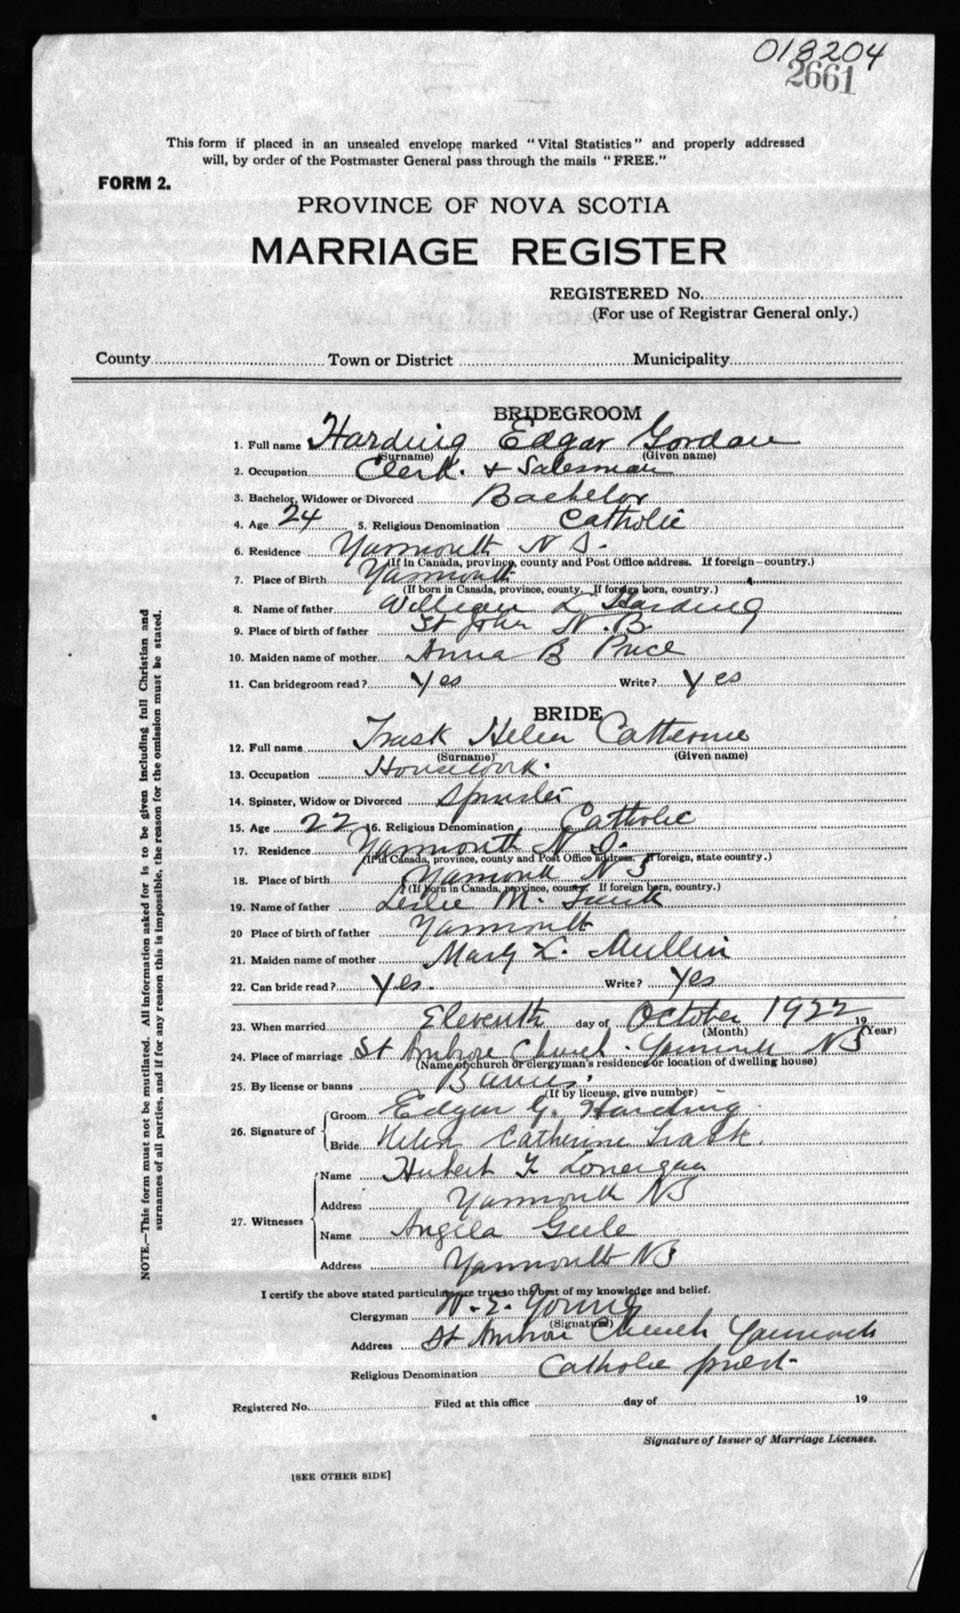 018204
2661
This form if placed in an unsealed envelope marked "Vital Statistics" and properly addressed
will, by order of the Postmaster General pass through the mails "FREE."
FORM 2.
PROVINCE OF NOVA SCOTIA
MARRIAGE REGISTER
REGISTERED No.
(For use of Registrar General only.)
County Town or District Municipality
BRIDEGROOM
1. Full name Harding Edgar Gordon
(Surname) (Given name)
2. Occupation Clerk. + Salesman
3. Bachelor, Widower or Divorced Bachelor
4. Age 24 5. Religious Denomination Catholic
6. Residence Yarmouth N S.
(If in Canada, province, county and Post Office address. If foreign—country.)
7. Place of Birth Yarmouth
(If born in Canada, province, county. If foreign born, country.)
8. Name of father William L Harding
9. Place of birth of father St John N.B.
10. Maiden name of mother Anna B Price
11. Can bridegroom read? Yes Write? Yes
BRIDE
12. Full name Trask Helen Catherine
(Surname) (Given name)
13. Occupation Housework.
14. Spinster, Widow or Divorced Spinster
15. Age 22 16. Religious Denomination Catholic
17. Residence Yarmouth N S.
(If in Canada, province, county and Post Office address. If foreign, state country.)
18. Place of birth Yarmouth N S
(If born in Canada, province, county. If foreign born, country.)
19. Name of father Leslie M. Trask
20 Place of birth of father Yarmouth
21. Maiden name of mother Mary L. Mullin
22. Can bride read? Yes. Write? Yes
23. When married Eleventh day of October 1922 19
(Month) (Year)
24. Place of marriage St Ambrose Church. Yarmouth NS
(Name of church or clergyman's residence or location of dwelling house)
25. By license or banns Banns.
(If by license, give number)
26. Signature of
Groom Edgar G. Harding.
Bride Helen Catherine Trask.
27. Witnesses
Name Hubert F Lonergan
Address Yarmouth NS
Name Angela
Address Yarmouth NS
I certify the above stated particulars are true to the best of my knowledge and belief.
Clergyman W. E. Young
(Signature)
Address St Ambrose Church Yarmouth
Religious Denomination Catholic priest
Registered No. Filed at this office day of 19
Signature of Issuer of Marriage Licenses.
[SEE OTHER SIDE]
NOTE.—This form must not be mutilated. All information asked for is to be given including full Christian and
surnames of all parties, and if for any reason this is impossible, the reason for the omission must be stated.